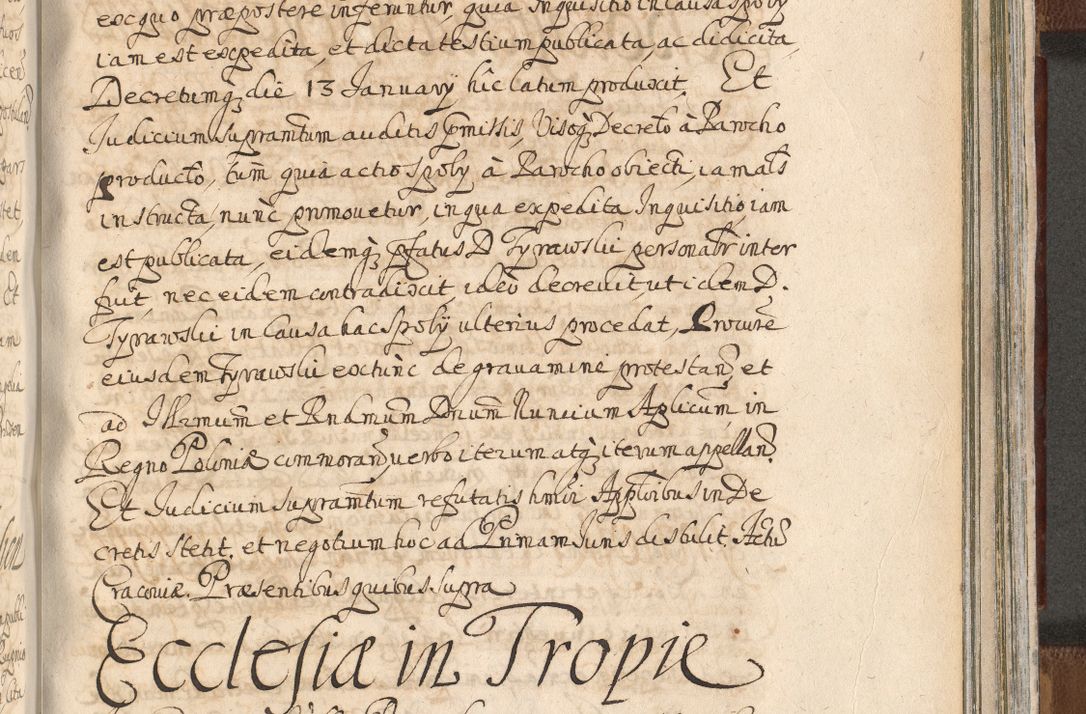 excquo præpostere inferuntur, quia Inquisitio in causa spoly
iam est expedita, et dicta testium publicata, ac didicita,
Decretumq3 die 13 January hîc latum produxit. Et
Judicium supramtum auditis pmissis, Visoq3 Decreto à Parocho
producto, tum quia actio spoly à Parocho obiecti, iam als
instructa, nunc promovetur, in qua expedita Inquisitio, iam
est publicata, eidemq3 pfatus D Tyrawslii personalr inter
fuit, nec eidem contradixcit, ideo decrevit, ut idem D.
Tyrawslii in causa hac spoly ulterius procedat, Procure
eiusdem Tyrawslii exctunc de gravamine protestan, et
ad Illrmum et Rndmum Dnum Nuncium Aplicum, in
Regno Poloniæ commoran, verbo iterum atq3 iterum appellan.
Et Judicium supramtum refutatis hmoi Applõibus in De
cretis stetit, et negotium hoc ad Primam Juris distulit. Actũ
Cracoviæ. Præsentibus quibus supra
Ecclesiæ in Tropie